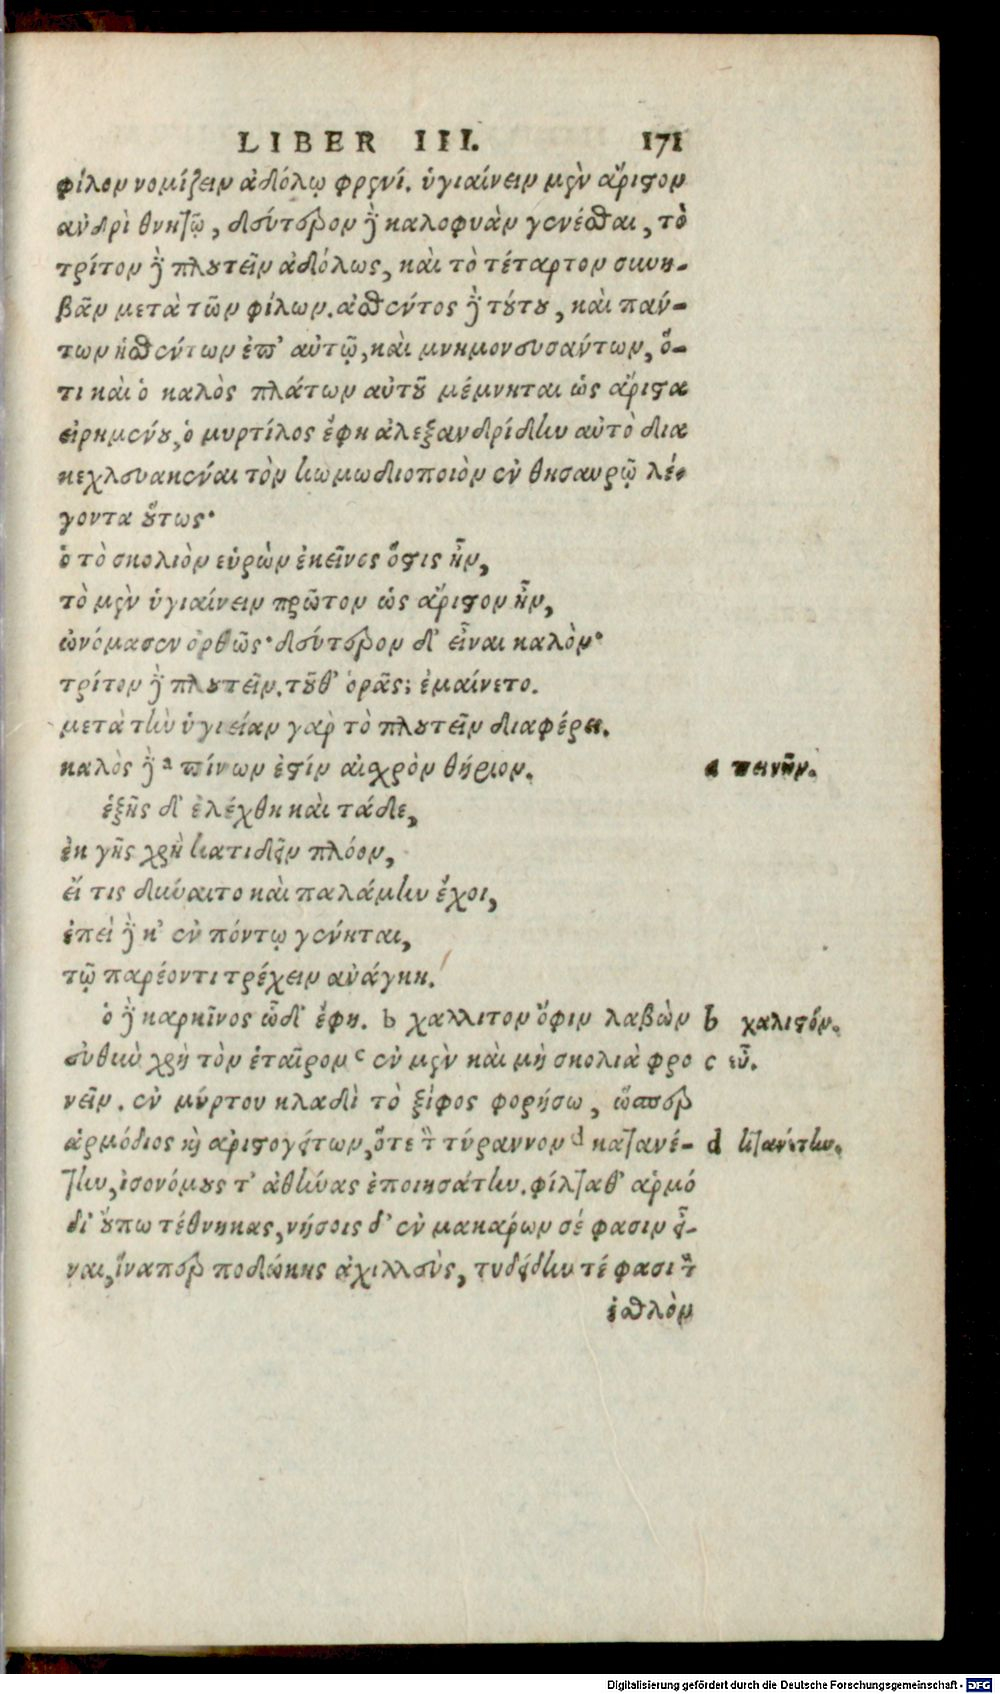 LIBER III. 171
φίλον νομίζειν ἀδόλῳ φρενί. ὑγιαίνειν μὲν ἄριστον
ἀνδρὶ θνητῷ, δεύτερον δὲ καλοφυὰν γενέσθαι, τὸ
τρίτον δὲ πλουτεῖν ἀδόλως, καὶ τὸ τέταρτον συνη-
βᾶν μετὰ τῶν φίλων. ἀσθέντος δὲ τούτου, καὶ πάν-
των ἡσθέντων ἐπ' αὐτῷ, καὶ μνημονευσάντων, ὅ-
τι καὶ ὁ καλὸς πλάτων αὐτοῦ μέμνηται ὡς ἄριστα
εἰρημένου, ὁ μυρτίλος ἔφη ἀλεξανδρίδην αὐτὸ δια
κεχλευακέναι τὸν κωμωδιοποιὸν ἐν θησαυρῷ λέ-
γοντα οὕτως·
ὁ τὸ σκολιὸν εὑρὼν ἐκεῖνος ὅστις ἦν,
τὸ μὲν ὑγιαίνειν πρῶτον ὡς ἄριστον ἦν,
ὠνόμασεν ὀρθῶς· δεύτερον δ' εἶναι καλὸν·
τρίτον δὲ πλουτεῖν. τοῦθ' ὁρᾷς; ἐμαίνετο.
μετὰ τὴν ὑγιείαν γὰρ τὸ πλουτεῖν διαφέρει.
καλὸς δὲ a πίνων ἐστὶν αἰσχρὸν θήριον. a πεινῶν.
ἑξῆς δ' ἐλέχθη καὶ τάδε,
ἐκ γῆς χρὴ κατιδεῖν πλόον,
εἴ τις δύναιτο καὶ παλάμην ἔχοι,
ἐπεὶ δὲ κ' ἐν πόντῳ γένηται,
τῷ παρέοντι τρέχειν ἀνάγκη.
ὁ δὲ καρκῖνος ὧδ' ἔφη. b χαλλιτον ὄφιν λαβὼν b χαλιστόν.
εὐθιὺ χρὴ τὸν ἑταῖρον c ἐν μὲν καὶ μὴ σκολιὰ φρο c εὖ.
νεῖν. ἐν μύρτου κλαδὶ τὸ ξίφος φορήσω, ὥσπερ
ἁρμόδιος καὶ ἀριστογείτων, ὅτε τὸν τύραννον d κατανέ- d κτανέτην.
την, ἰσονόμους τ' ἀθήνας ἐποιησάτην. φίλταθ' ἁρμό
δι' οὔπω τέθνηκας, νήσοις δ' ἐν μακάρων σέ φασιν εἶ-
ναι, ἵναπερ ποδώκης ἀχιλλεὺς, τυδείδην τέ φασι τὸν
ἐσθλὸν
Digitalisierung gefördert durch die Deutsche Forschungsgemeinschaft - DFG